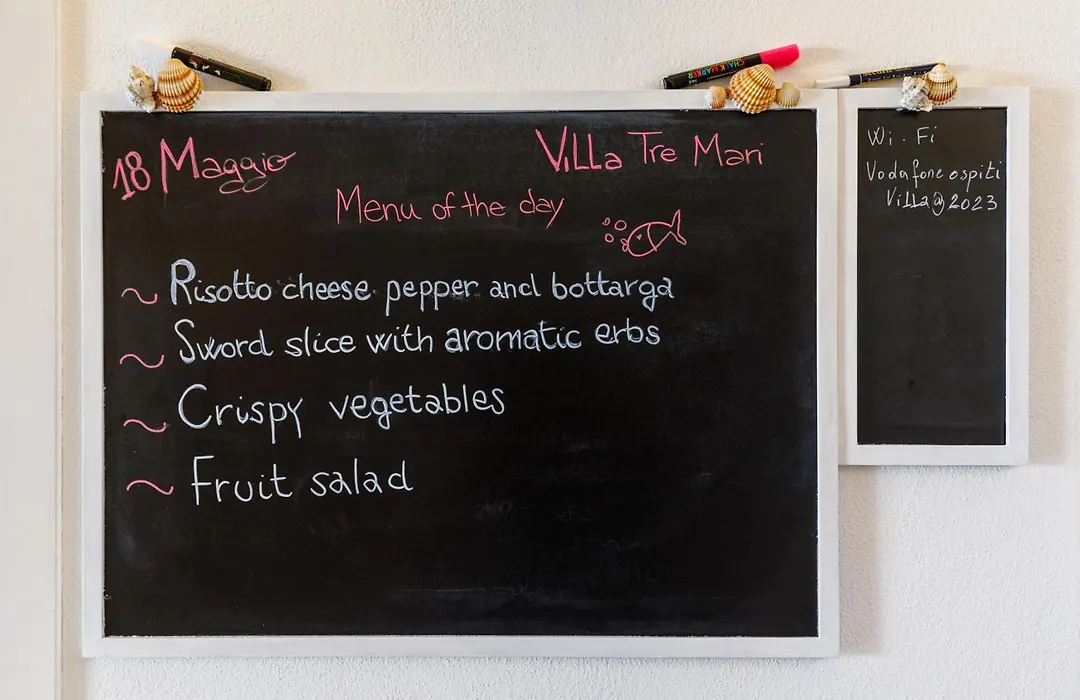 18 Maggio
Villa Tre Mari
Menu of the day
~ Risotto cheese pepper and bottarga
~ Sword slice with aromatic erbs
~ Crispy vegetables
~ Fruit salad
CHALK MARKER
Wi-Fi
Vodafone ospiti
Villa@2023